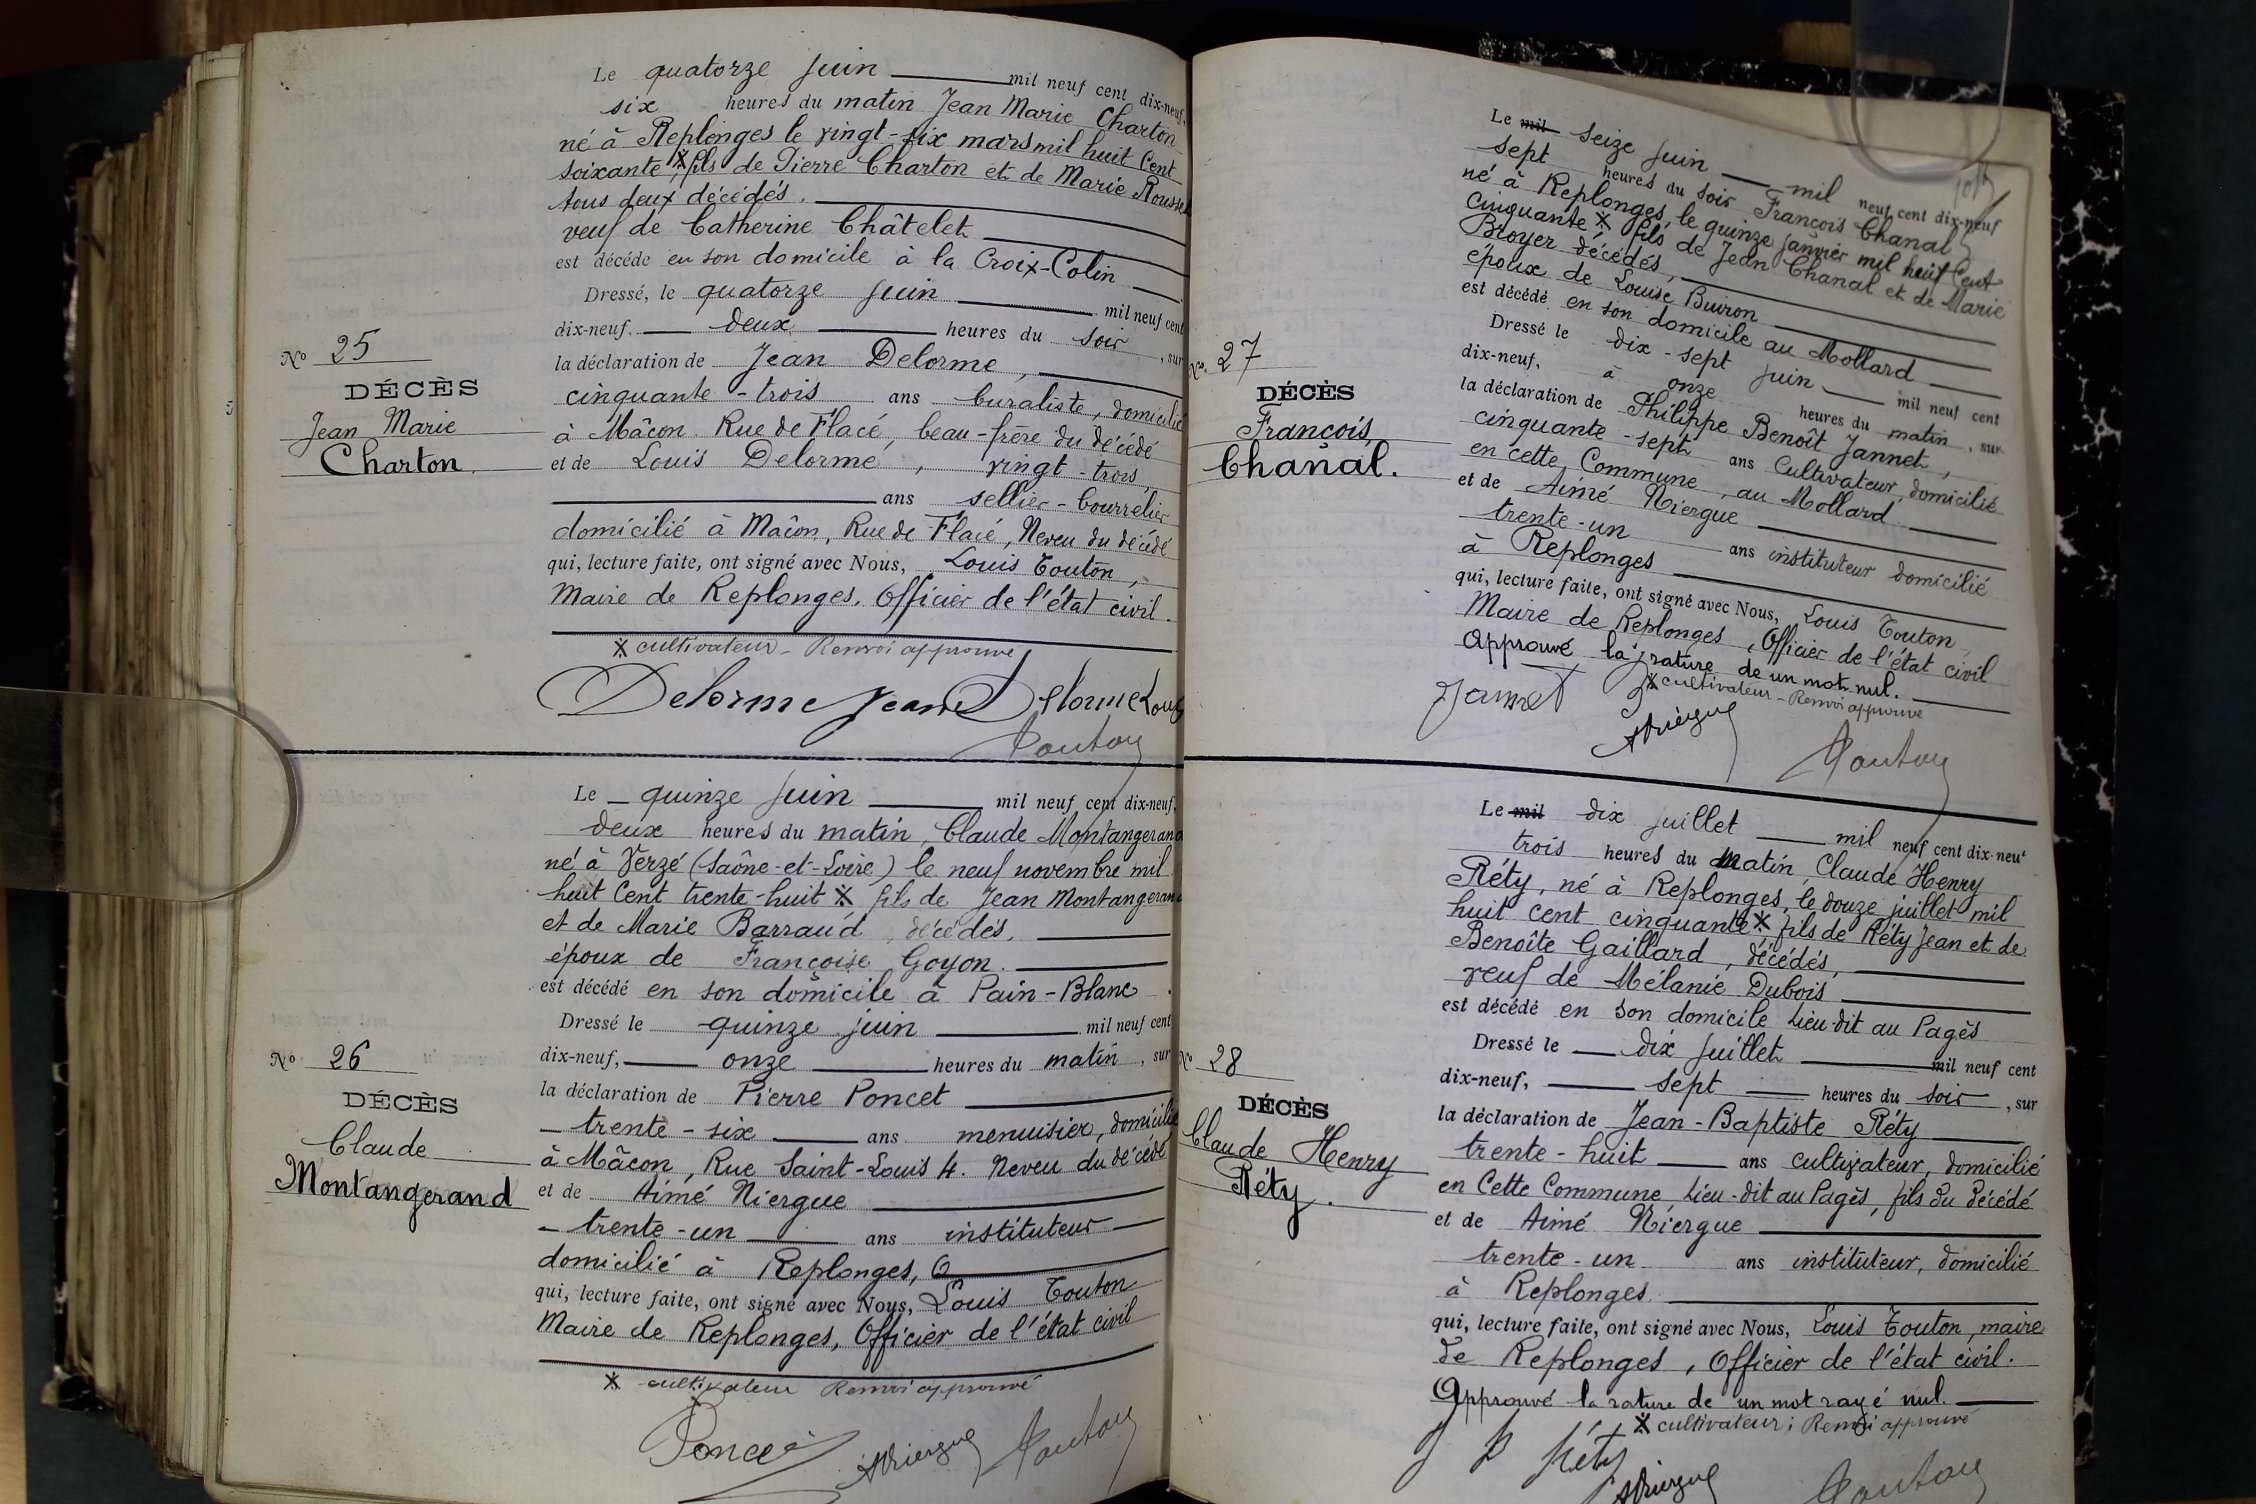 Le quatorze juin mil neuf cent dix-neuf,
six heures du matin Jean Marie Charton
né à Replonges le vingt-six mars mil huit Cent
soixante X fils de Pierre Charton et de Marie Rousset
tous deux décédés.
veuf de Catherine Châtelet
est décédé en son domicile à la Croix-Colin
Dressé, le quatorze juin mil neuf cent
dix-neuf. deux heures du soir, sur
la déclaration de Jean Delorme,
cinquante-trois ans buraliste, domicilié
à Mâcon Rue de Flacé, beau-frère du décédé
et de Louis Delorme, vingt-trois
ans sellier-bourrelier
domicilié à Mâcon, Rue de Flacé, Neveu du décédé
qui, lecture faite, ont signé avec Nous, Louis Touton,
Maire de Replonges, Officier de l'état civil.
X cultivateur - Renvoi approuvé
Delorme Jean Delorme Louis
Touton
No 25
DÉCÈS
Jean Marie
Charton.
Le quinze juin mil neuf cent dix-neuf,
deux heures du matin, Claude Montangerand
né à Verzé (Saône-et-Loire) le neuf novembre mil
huit Cent trente-huit X fils de Jean Montangerand
et de Marie Barraud, décédés.
époux de Françoise Goyon.
est décédé en son domicile à Pain-Blanc.
Dressé le quinze juin mil neuf cent
dix-neuf, onze heures du matin, sur
la déclaration de Pierre Poncet
trente-six ans menuisier, domicilié
à Mâcon, Rue Saint-Louis 4. Neveu du décédé
et de Aimé Niergue
trente-un ans instituteur
domicilié à Replonges,
qui, lecture faite, ont signé avec Nous, Louis Touton
Maire de Replonges, Officier de l'état civil
X cultivateur Renvoi approuvé
Poncet ANiergue Touton
No 26
DÉCÈS
Claude
Montangerand
Le mil seize juin mil neuf cent dix-neuf
sept heures du soir François Chanal
né à Replonges, le quinze janvier mil huit Cent
Cinquante X fils de Jean Chanal et de Marie
Broyer décédés,
époux de Louise Buiron
est décédé en son domicile au Mollard
Dressé le dix-sept juin mil neuf cent
dix-neuf, à onze heures du matin, sur
la déclaration de Philippe Benoît Jannet,
cinquante-sept ans Cultivateur, domicilié
en cette Commune, au Mollard.
et de Aimé Niergue
trente-un ans instituteur domicilié
à Replonges
qui, lecture faite, ont signé avec Nous, Louis Touton,
Maire de Replonges, Officier de l'état civil
Approuvé la rature de un mot nul.
X cultivateur - Renvoi approuvé
Jannet ANiergue Touton
No. 27
DÉCÈS
François,
Chanal.
Le mil dix juillet mil neuf cent dix-neuf
trois heures du matin, Claude Henry
Réty, né à Replonges, le douze juillet mil
huit cent cinquante X, fils de Réty Jean et de
Benoîte Gaillard, décédés,
veuf de Mélanie Dubois
est décédé en son domicile Lieu-dit au Pagès
Dressé le dix juillet mil neuf cent
dix-neuf, sept heures du soir, sur
la déclaration de Jean-Baptiste Réty
trente-huit ans cultivateur, domicilié
en Cette Commune Lieu-dit au Pagès, fils du décédé
et de Aimé Niergue
trente-un ans instituteur, domicilié
à Replonges
qui, lecture faite, ont signé avec Nous, Louis Touton, maire
de Replonges, Officier de l'état civil.
Approuvé la rature de un mot rayé nul.
X cultivateur; Renvoi approuvé
J B Réty
ANiergue Touton
No 28
DÉCÈS
Claude Henry
Réty.